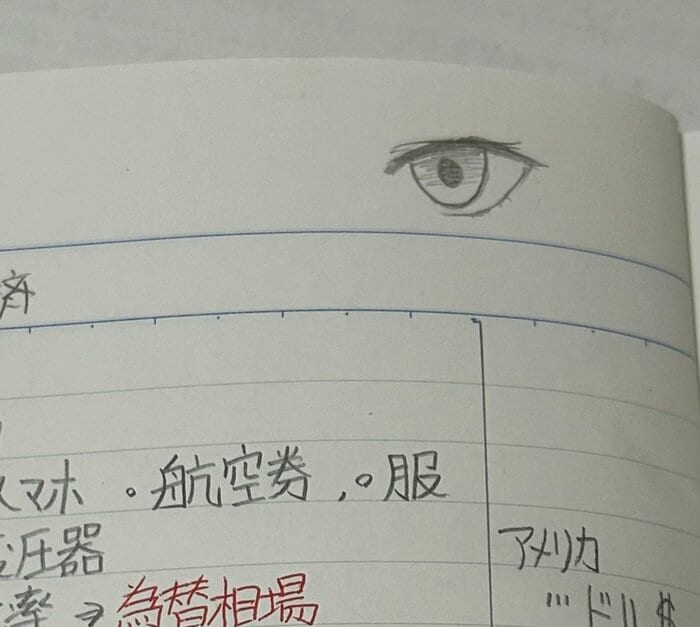 済
スマホ 。航空券 , 。服
圧器
アメリカ
率 → 為替相場
… ドル $